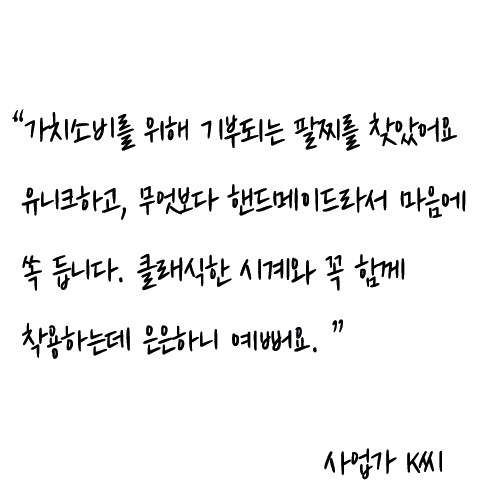 “가치소비를 위해 기부되는 팔찌를 찾았어요
유니크하고, 무엇보다 핸드메이드라서 마음에
쏙 듭니다. 클래식한 시계와 꼭 함께
착용하는데 은은하니 예뻐요. ”
사업가 K씨